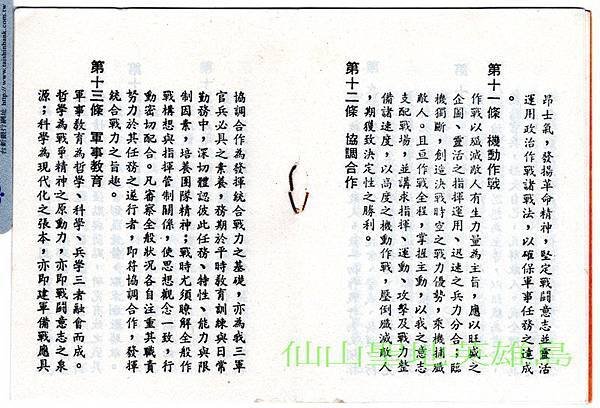 昂士氣，發揚革命精神，堅定戰鬪意志並靈活
運用政治作戰諸戰法，以確保軍事任務之達成
。
第十一條　機動作戰
作戰以殲滅敵人有生力量為主旨，應以旺盛之
企圖、靈活之指揮運用、迅速之兵力分合；臨
機獨斷，創造決戰時空之戰力優勢，乘機捕殲
敵人。且亘作戰全程，掌握主動，以我之意志
支配戰場，並講求指揮、運動、攻擊及戰力整
備諸速度，以高度之機動作戰，壓倒殲滅敵人
，期獲致決定性之勝利。
第十二條　協調合作
協調合作為發揮統合戰力之基礎，亦為我三軍
官兵必具之素養，務期於平時教育訓練與日常
勤務中，深切體認彼此任務、特性、能力與限
制因素，培養團隊精神；戰時尤須瞭解全般作
戰構想與指揮管制關係，使思想觀念一致，行
動密切配合。凡審察全般狀況各自注重其職責
努力於其任務之遂行者，即符協調合作，發揮
統合戰力之旨趣。
第十三條　軍事教育
軍事教育為哲學、科學、兵學三者融會而成。
哲學為戰爭精神之原動力，亦即戰鬪意志之泉
源；科學為現代化之張本，亦即建軍備戰應具
仙山聖地英雄島